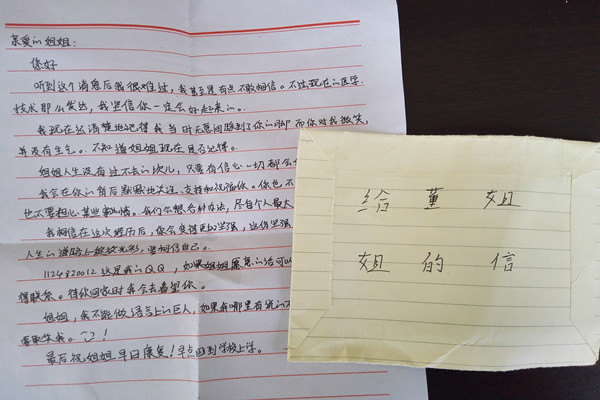 亲爱的姐姐:
您好
听到这个消息后我很难过,我甚至是有点不敢相信。不过现在的医学
技术那么发达,我坚信你一定会好起来的。
我现在还清楚地记得我当时无意间踩到了你的脚而你对我微笑,
并没有生气。不知道姐姐现在是否记得。
姐姐人生没有过不去的坎儿,只要有信心一切都会
我会在你的背后默默地关注、支持和祝福你。你也不
也不要担心某些事情。我们会想各种办法,尽自个人最大
我相信在这次经历后,你会变得更加坚强,这份坚强
人生的道路上绽放光彩,要相信自己。
1124820012这是我的QQ,如果姐姐康复的话可以
得联系。等你回家时我会去看望你。
姐姐,我不能做语言上的巨人,如果有哪里有说的不
最后祝姐姐早日康复!早点回到学校上学。
给 董 姐
姐 的 信